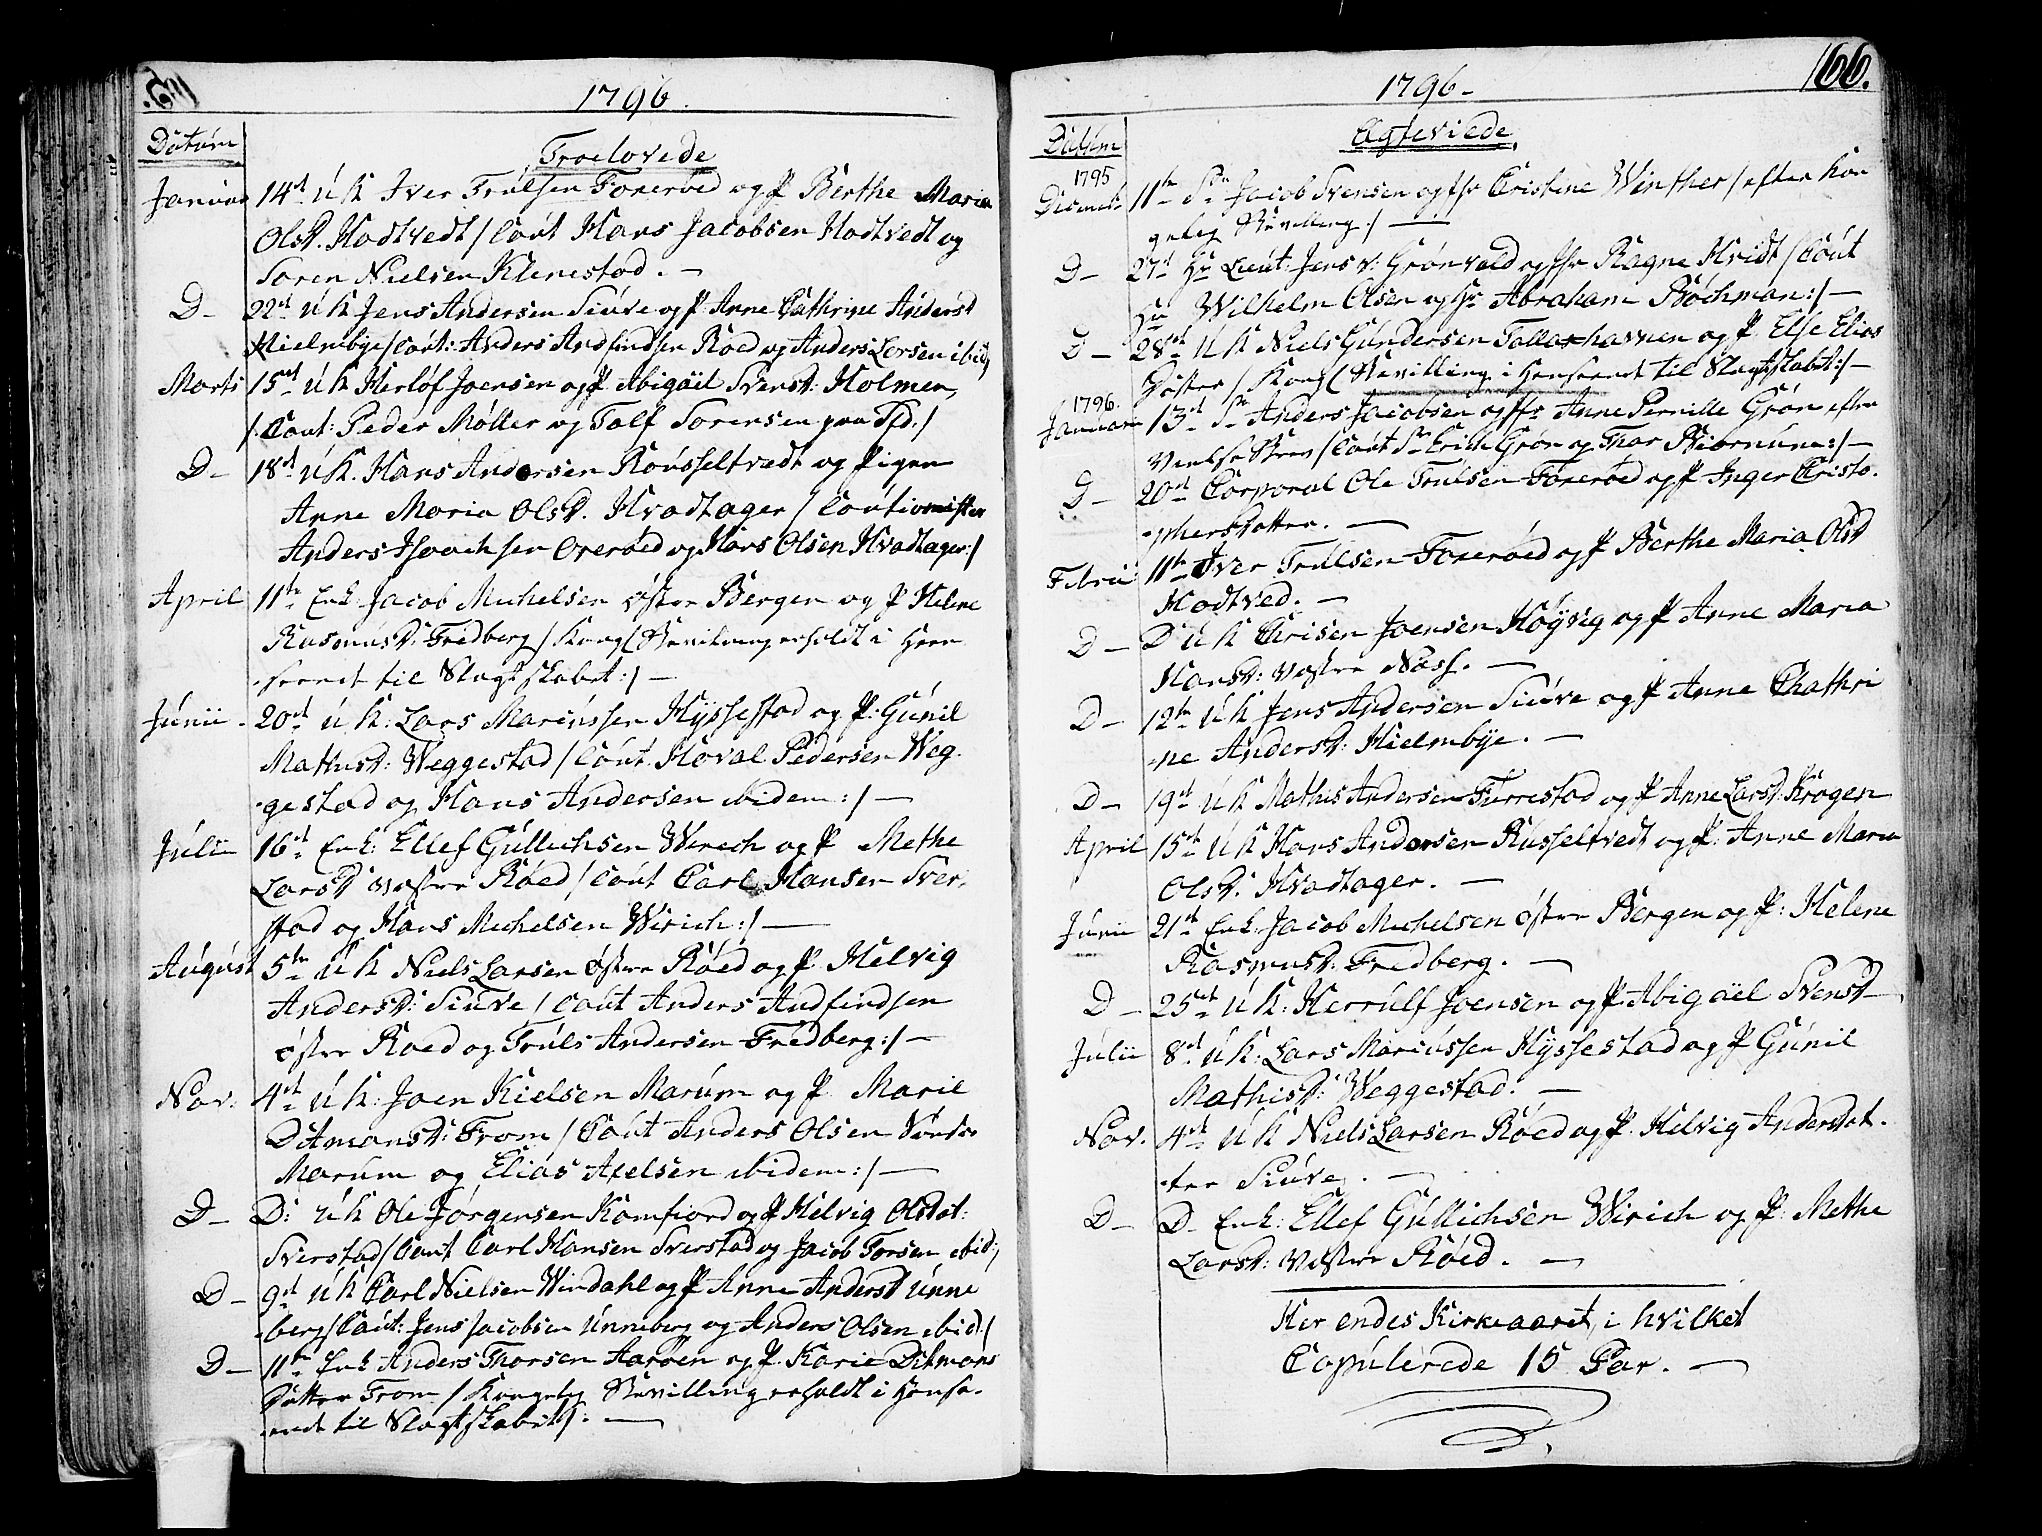 1796.
Datum
Troelovede
Januar 14de U K Iver Trulsen Foxeröed og P. Berthe Maria
Olsd. Hadtvedt / Caut Hans Jacobsen Hadtvedt og
Soren Nielsen Klenestad. –
D – 22de U K Jens Andersen Siuve og P. Anne Cathrine Andersd
Hielmbÿe / Caut: Anders Andfindsen Röed og Anders Larsen ibid
Marts 15de U K Herlöf Joensen og P. Abigäil Svensd: Holmen,
/ Caut: Peder Møller og Tolf Sorensen paa Tfd. /
D – 18de U K. Hans Andersen Rousseltvedt og Pigen
Anne Maria Olsd. Hvadtager / Cautionister
Anders Isaachsen Oxeröed og Hans Olsen Hvadtager :/
April 11te Enk: Jacob Michelsen østre Bergen og P Helene
Rasmusd: Fredberg / Kongl Bevilling erholdt i Hen
seende til Slagtskabet :/ –
Junii – 20de U K: Lars Mariussen Hÿssestad og P: Gunil
Mathisd: Weggestad / Caut. Hoval Pedersen Weg
gestad og Hans Andersen ibidem :/ –
Julii 16de Enk: Ellef Gullichsen Wirich og P. Methe
Larsd westre Röed / Caut Carl Hansen Sver
stad og Hans Michelsen Wirich :/ –
August 5te U K Niels Larsen østre Röed og P. Helvig
Andersd: Siuve / Caut Anders Andfindsen
østre Roed og Truls Andersen Fredberg :/ –
Nov: 4de U K: Joen Kielsen Marum og P. Marie
Ditmansd: From / Caut Anders Olsen
Marum og Elias Axelsen ibidem :/ –
D – D: U K Ole Jørgensen Kamfiord og P Helvig Olsdat:
Sverstad / Caut Carl Hansen Sverstad og Jacob Torsen ibid:/
D – 9de U K Carl Nielsen Windahl og P Anne Andersd Unne
berg / Caut: Jens Jacobsen Unneberg og Anders Olsen ibid: /
D – 11te Enk Anders Thorsen Aaröen og P. Karie Ditmans
Datter From / Kongelig Bevilling erholdt i Hense
ende til Slagtskabet / : –
166.
1796 –
Datum
Ægteviede
1795
Decemb: 11te Sr Jacob Svensen og Jfr Cristine Winther / efter Kon
gelig Bevilling :/ –
D – 27de Hr Lieut: Jens v: Grönvold og Jfr Ragne Hvidt / Caut
Hr Wilhelm Olsen og Hr Abraham Böchman :/ –
D – 28de U K Niels Gundersen Tallaxhavnen og P. Else Elias
Datter / Kongl Bevilling i Henseende til Slagtskabet :/ –
1796.
Januarii 13de Sr Anders Jacobsen og Jfr Anne Pernille Grön efter
/ Caut Sr Erich Grön og Thor Biørnum :/ –
D – 20de Corporal Ole Trulsen Foxeröed og P Inger Cristo
phersdatter. –
Febru: 11te Iver Trulsen Foxeröed og P Berthe Maria Olsd
Hadtved. –
D – D U K Crisen Joensen Höÿsig og P Anne Maria
Hansd: westre Næss. –
D – 12te U K Jens Andersen Siuve og P Anne Chathri
ne Andersd: Hielmbÿe. –
D – 19de U K Mathis Andersen Furrestad og P Anne Larsd: Krogen
April 15de U K Hans Andersen Russeltvedt og P: Anne Maria
Olsd: Hvadtager. –
Junii 21de Enk: Jacob Michelsen østre Bergen og P: Helene
Rasmusd: Fredberg. –
D – 25de U K: Herrulf Joensen og P. Abigäel Svensd –
Julii 8de U K: Lars Mariussen Hÿssestad og P Gunil
Mathisd: Weggestad. –
Nov. 4de U K Niels Larsen Röed og P. Helvig Andersdat
ter Siuve. –
D – D – Enk: Ellef Gullichsen Wirich og P: Methe
Larsd: westre Röed. –
Her endes Kirkeaaret, i hvilket
Copulerede 15 Par. –